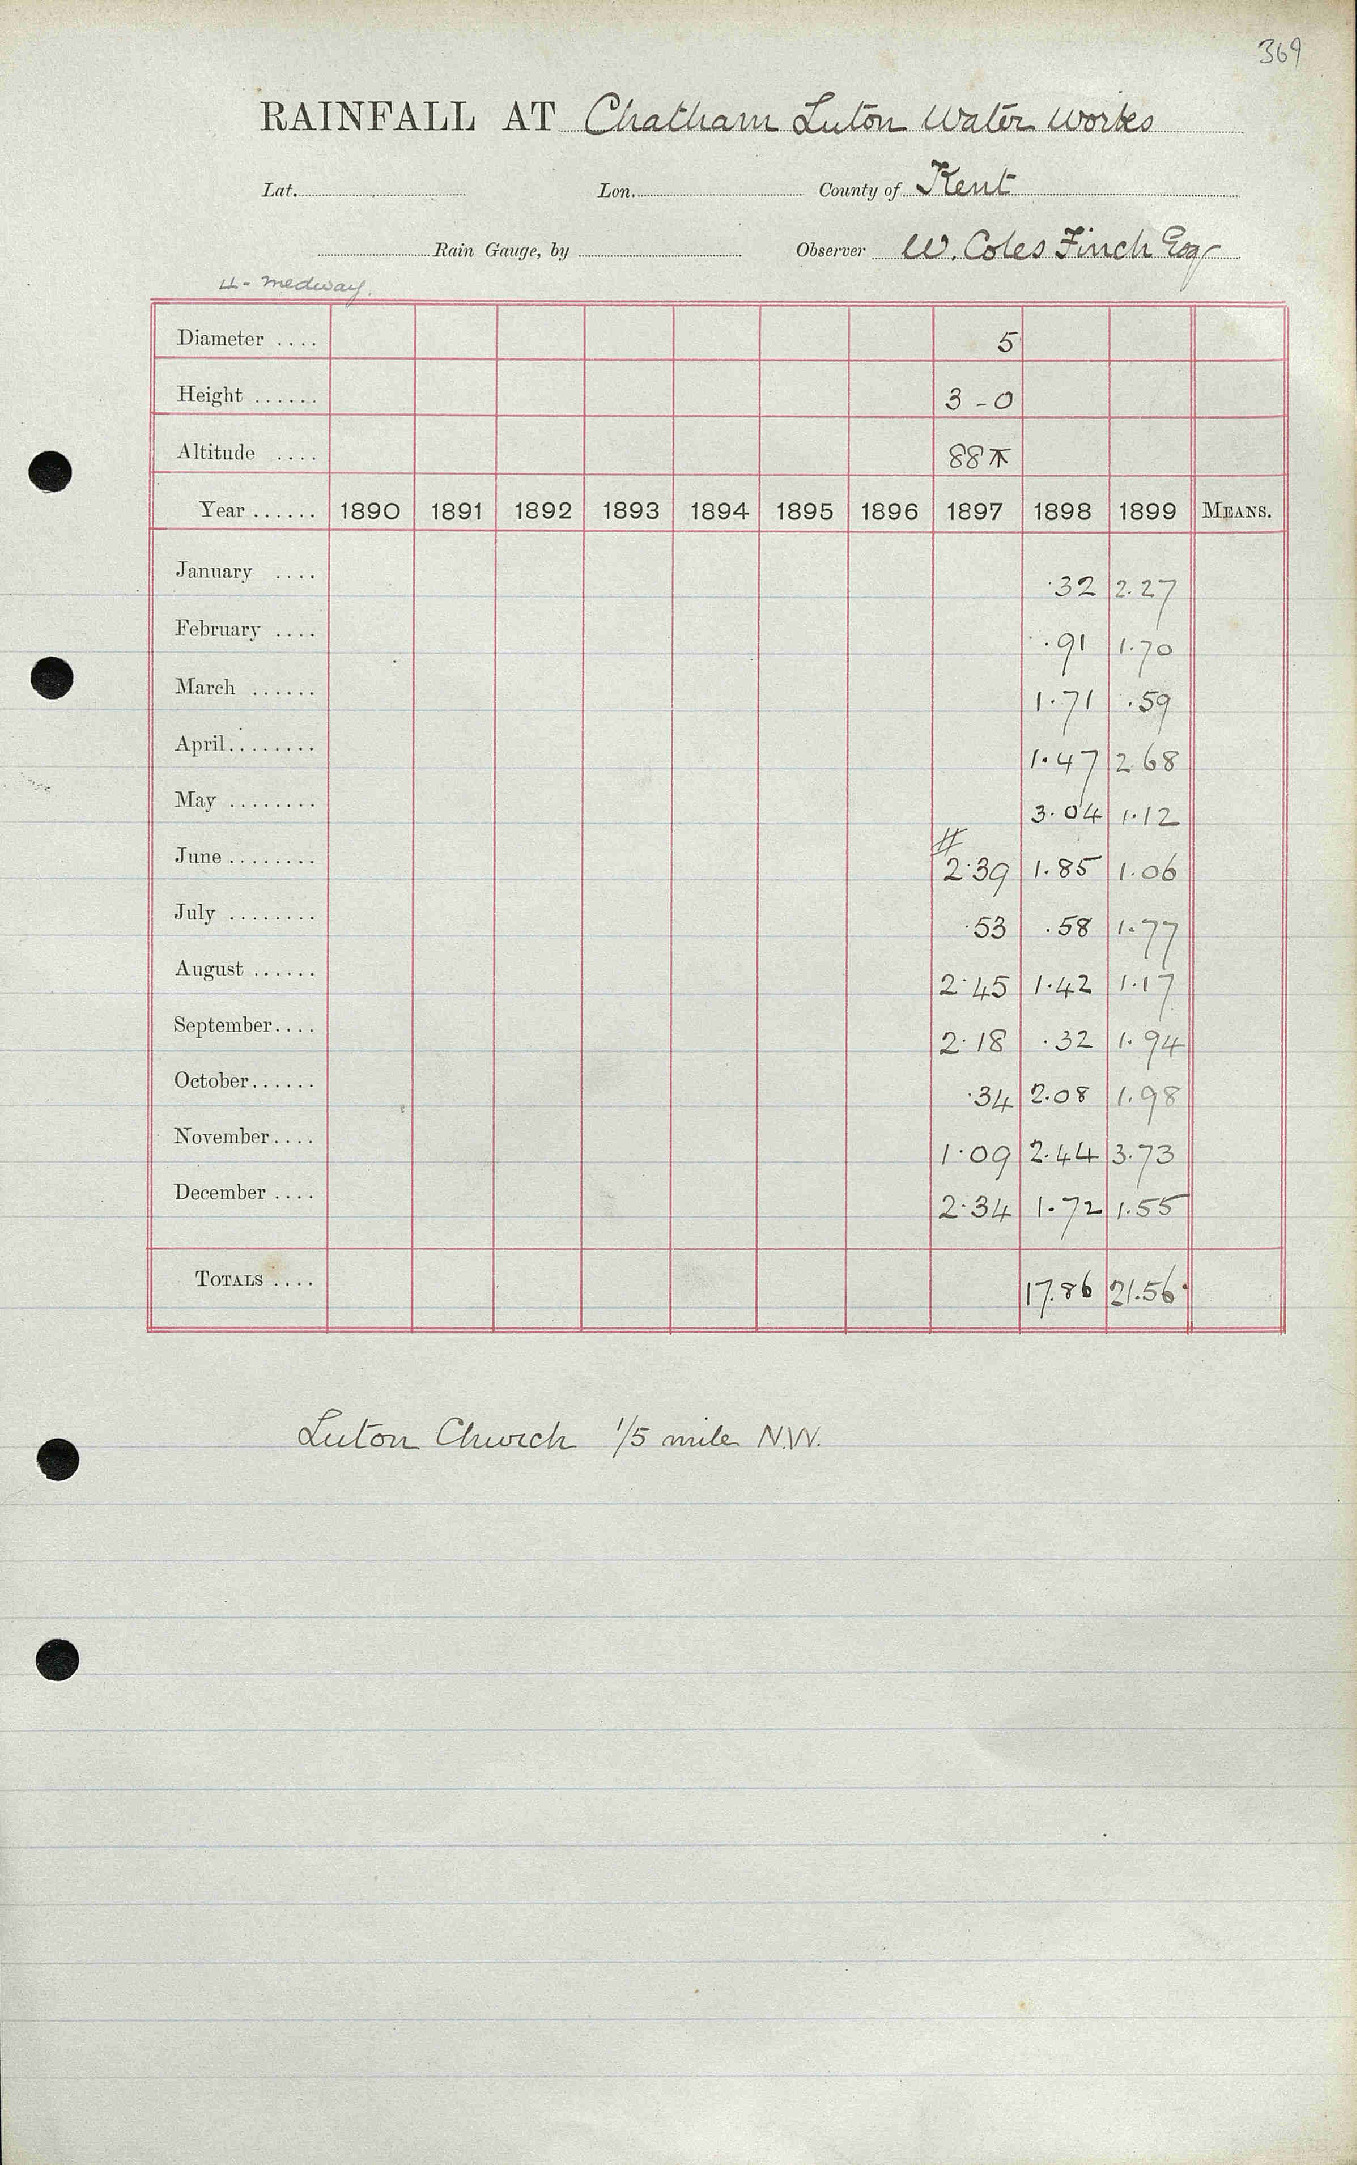 369
RAINFALL AT Chatham Luton Water Works
Lat. Lon. County of Kent
Rain Gauge, by Observer W. Coles Finch Esq
4 - Medway.
Diameter .... 5
Height ...... 3 - 0
Altitude .... 88
Year ...... 1890 1891 1892 1893 1894 1895 1896 1897 1898 1899 MEANS.
January .... .32 2.27
February .... .91 1.70
March ...... 1.71 .59
April........ 1.47 2.68
May ........ 3.04 1.12
June ........ # 2.39 1.85 1.06
July ........ .53 .58 1.77
August ...... 2.45 1.42 1.17
September.... 2.18 .32 1.94
October...... .34 2.08 1.98
November.... 1.09 2.44 3.73
December .... 2.34 1.72 1.55
TOTALS .... 17.86 21.56
Luton Church 1/5 mile N.W.